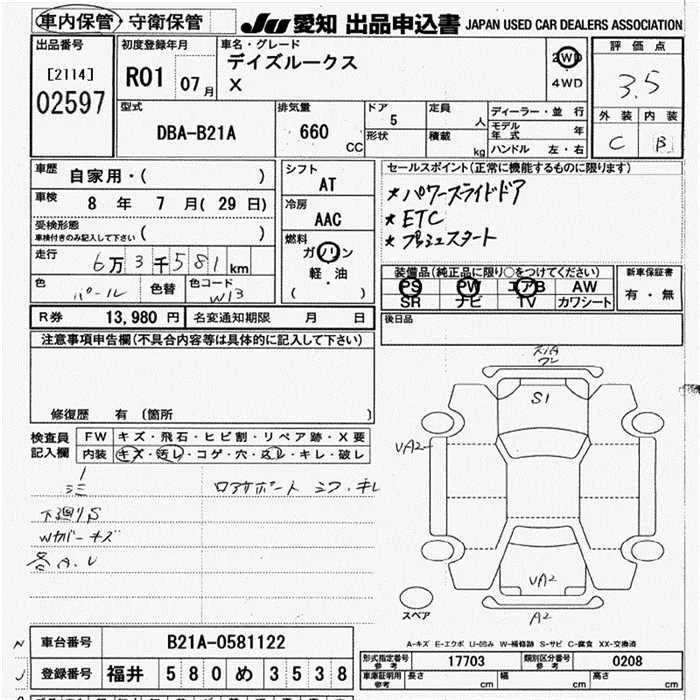 車内保管・守衛保管 JU 愛知 出品申込書 JAPAN USED CAR DEALERS ASSOCIATION
出品番号 [2114] 02597
初度登録年月 R01 07 月
車名・グレード デイズルークス X
2WD 4WD
評価点 3.5
外装 内装
C B
型式 DBA-B21A
排気量 660 CC
ドア 5 形状
定員 人 積載 kg
ディーラー・並行
モデル年式 年
ハンドル 左・右
車歴 自家用・( )
車検 8 年 7 月( 29 日)
受検形態 車検付きのみ記入して下さい ( )
走行 6万3千581km
色 パール 色替 色コード W13
シフト AT
冷房 AAC
燃料 ガソリン 軽・油 ( )
セールスポイント(正常に機能するものに限ります)
★パワースライドドア
★ETC
★プッシュスタート
装備品(純正品に限り○をつけてください)
PS PW エアB AW
SR ナビ TV カワシート
新車保証書 有・無
R券 13,980 円 名変通知期限 月 日
後日品
注意事項申告欄(不具合内容等は具体的に記入して下さい)
修復歴 有 (箇所 )
検査員記入欄 FW キズ・飛石・ヒビ割・リペア跡・X要
内装 キズ・汚レ・コゲ・穴・込レ・キレ・破レ
ロアサポート シワ・キレ
下廻りS
Wカバーキズ
各A.U
S1
VA2
VA2
A2
スペア
A-キズ E-エクボ U-凹み W-補修跡 S-サビ C-腐食 XX-交換済
車台番号 B21A-0581122
登録番号 福井 580 め 3538
型式指定番号 参考 17703 類別区分番号 参考 0208
車庫証明用 参考 長さ cm 幅 cm 高さ cm